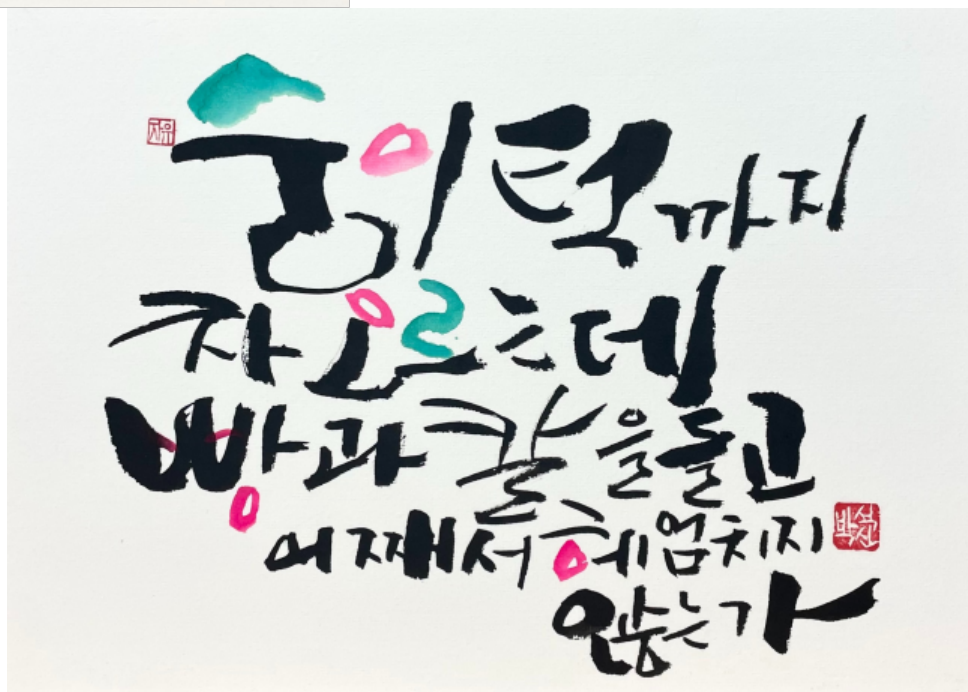 자유
숨이 턱까지
차오르는데
빵과 칼을 들고
어째서 헤엄치지
않는가
박석신